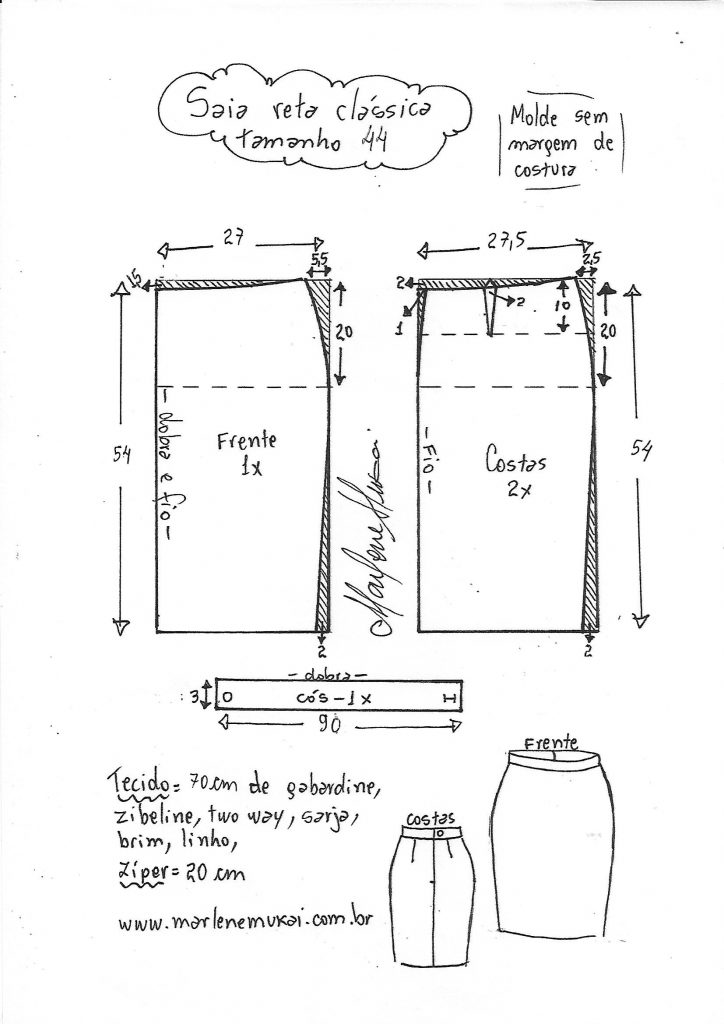 Saia reta clássica
tamanho 44
Molde sem
margem de
costura
27
5,5
1,5
20
54
- dobra e fio -
Frente
1x
2
Marlene Mukai
27,5
2,5
2
1
2
10
20
54
- Fio -
Costas
2x
2
- dobra -
3
cós - 1x
90
Tecido = 70 cm de gabardine,
zibeline, two way, sarja,
brim, linho,
Zíper = 20 cm
www.marlenemukai.com.br
Frente
costas